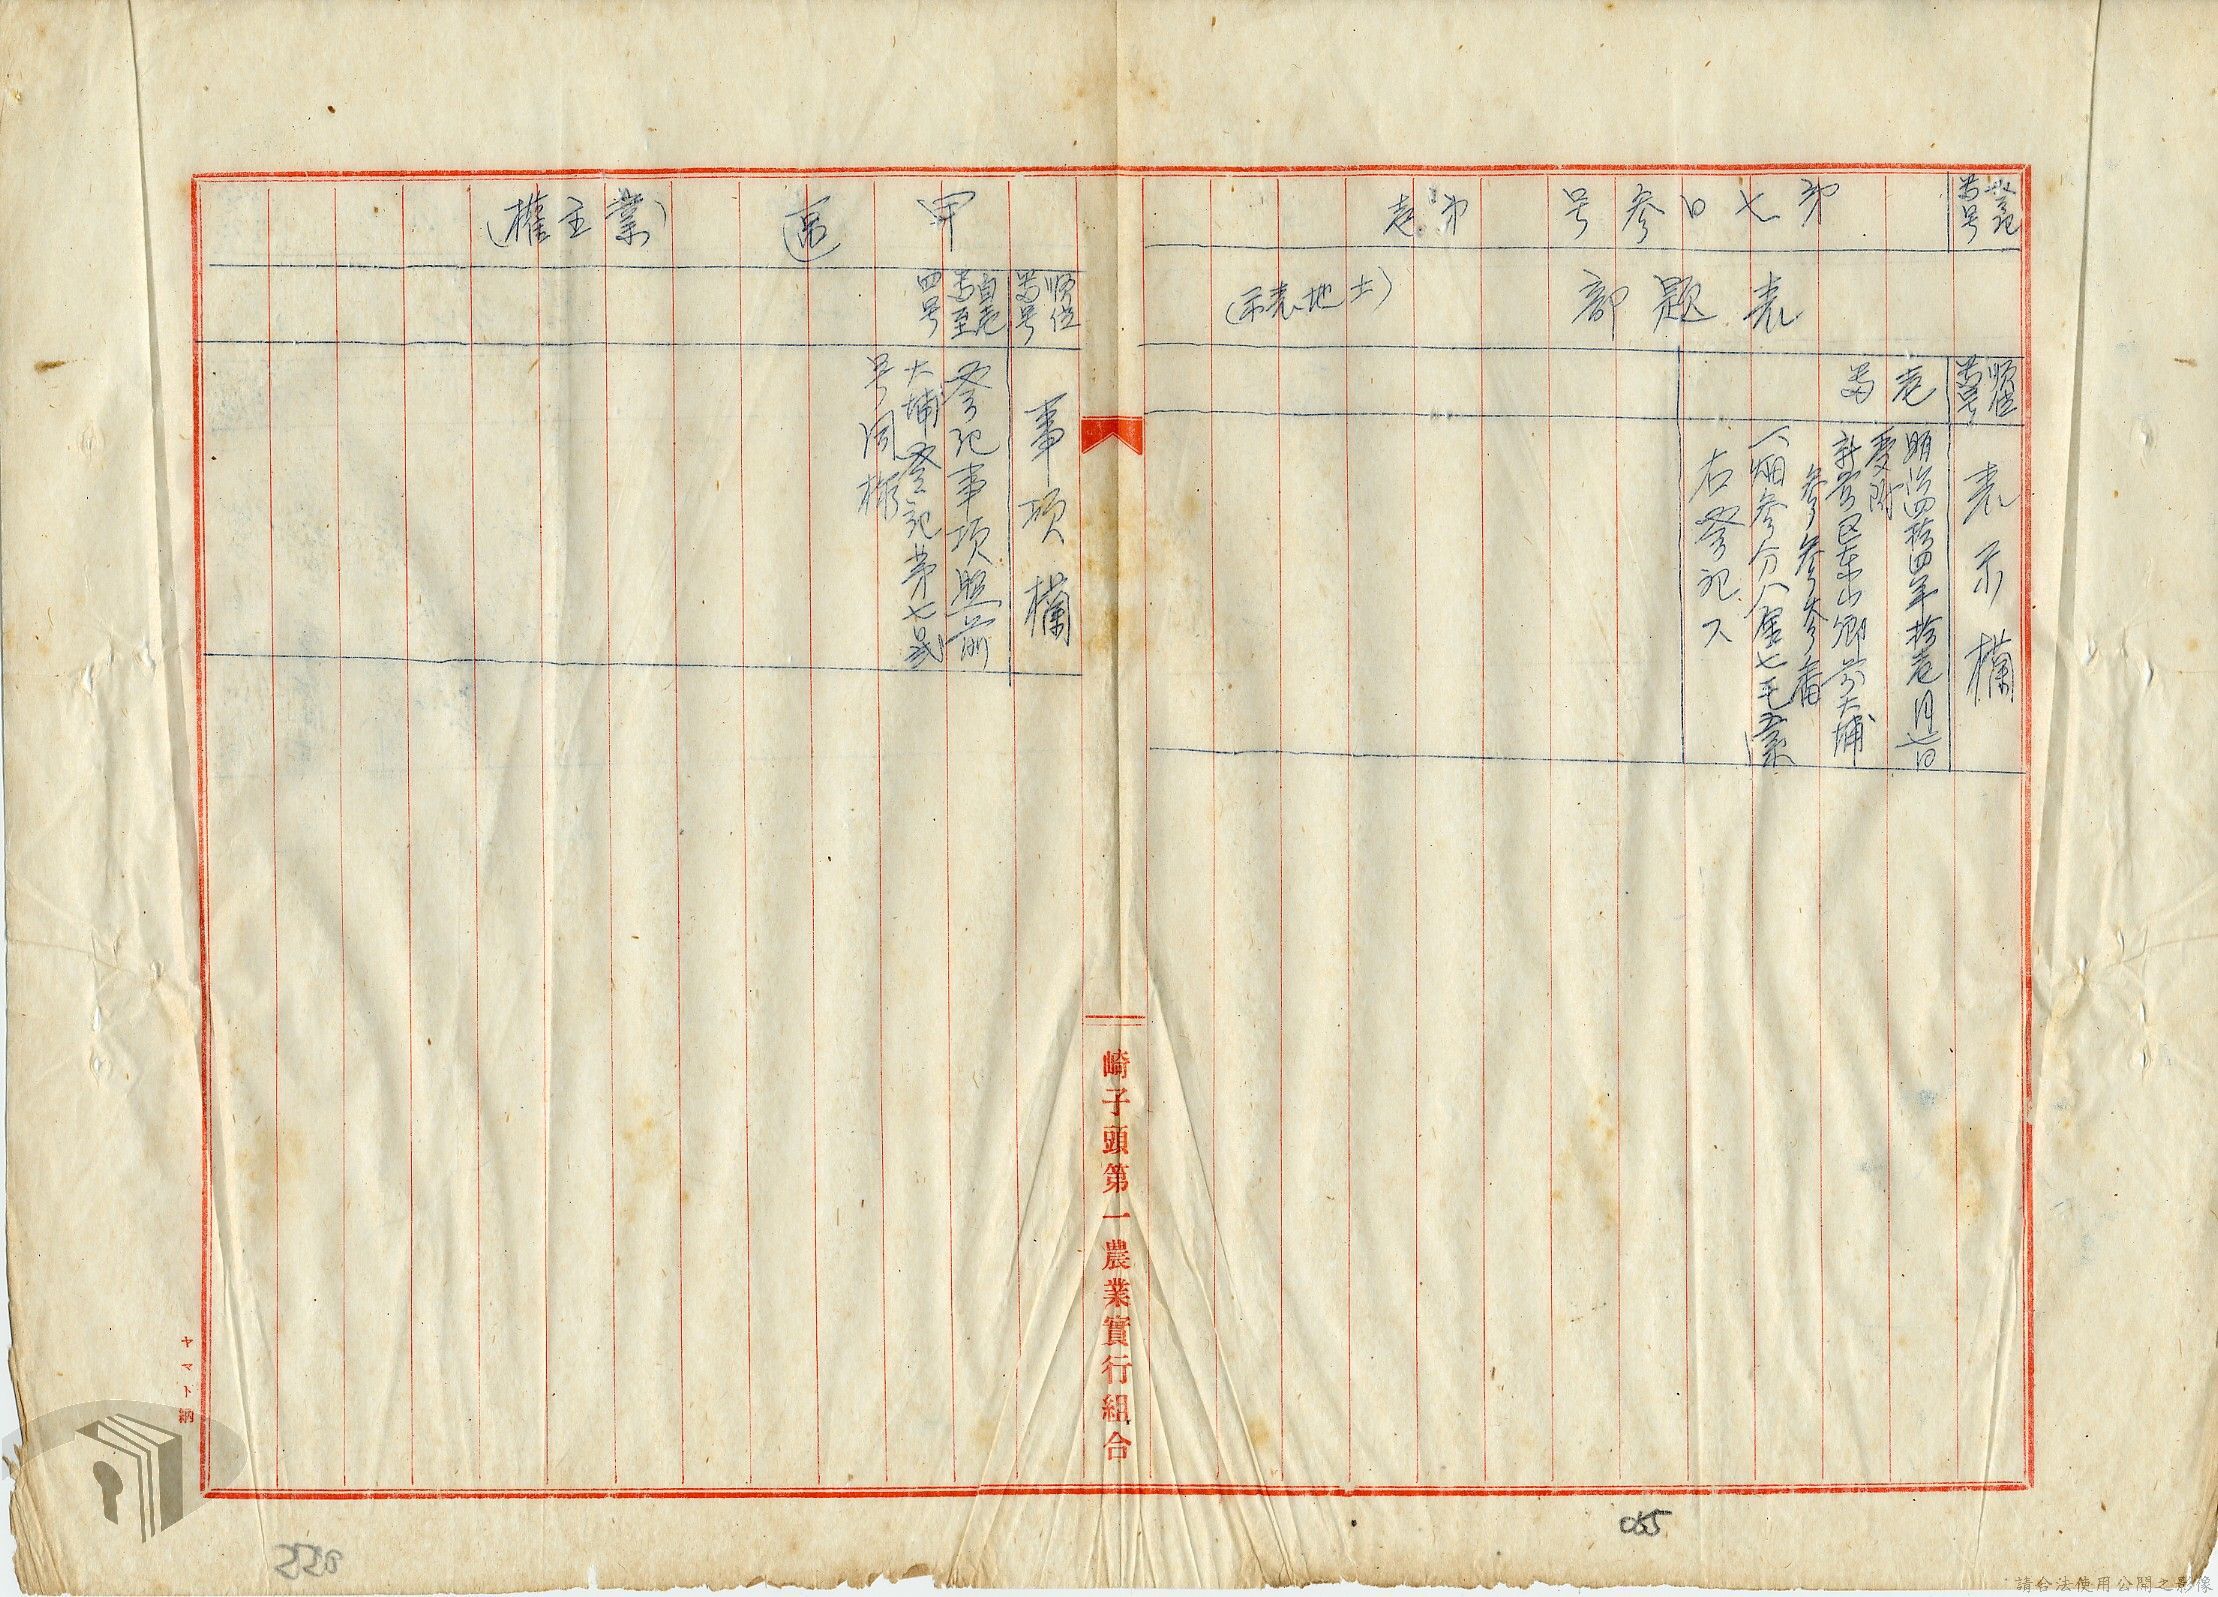 登記
番号
第七百参号
第壱
表題部
(土地表示)
順位
番号
表示欄
壱
番
明治四拾四年拾壱月七日
受附
新営区東山郷前大埔
参参参番
一畑参分八厘七毛五糸
右登記ス
甲區
(業主權)
順位
番号
事項欄
自壱
番至
四号
登記事項照前
大埔登記第七弐
号同様
崎子頭第一農業實行組合
ヤマト納
055
請合法使用公開之影像